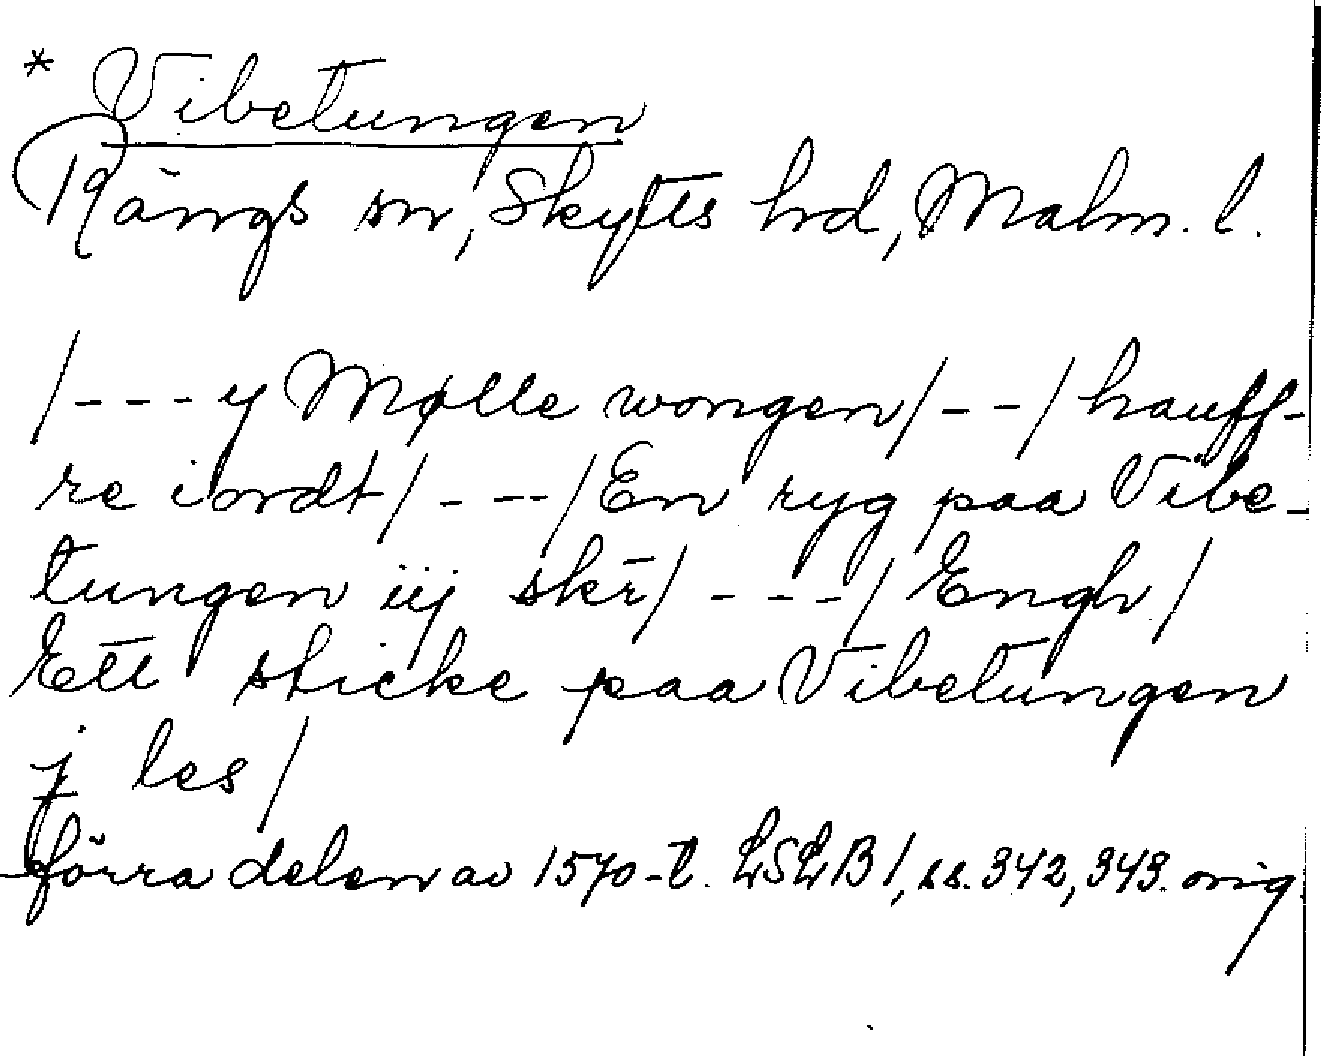 * Vibetungen
Rängs sn, Skytts hd, Malm. l.
/--- y Mølle wongen/--/hauff-
re iordt/---/En ryg paa Vibe-
tungen iij skr̄/---/Engh/
Ett sticke paa Vibetungen
j les/
förra delen av 1570-t. LSLB 1, ss. 342, 343. orig.